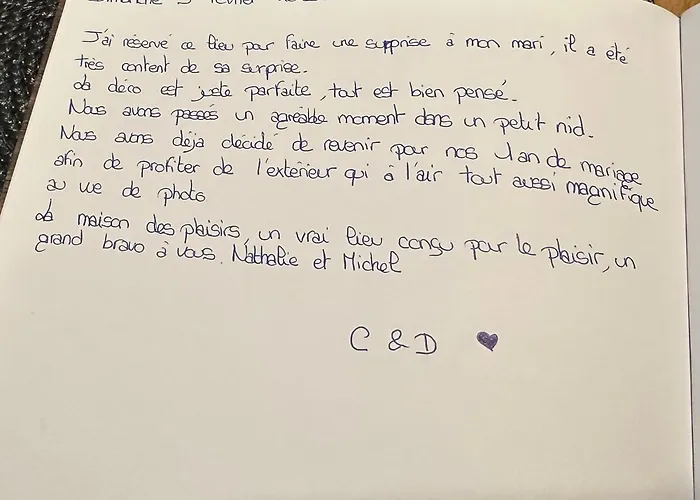 J'ai réservé ce lieu pour faire une surprise à mon mari, il a été
très content de sa surprise.
La déco est juste parfaite, tout est bien pensé.
Nous avons passés un agréable moment dans un petit nid.
Nous avons déja décidé de revenir pour nos 1 an de mariage
afin de profiter de l'extérieur qui à l'air tout aussi magnifique
au vue de photo
La maison des plaisirs, un vrai lieu conçu par le plaisir, un
grand bravo à vous. Nathalie et Michel
C & D ♥